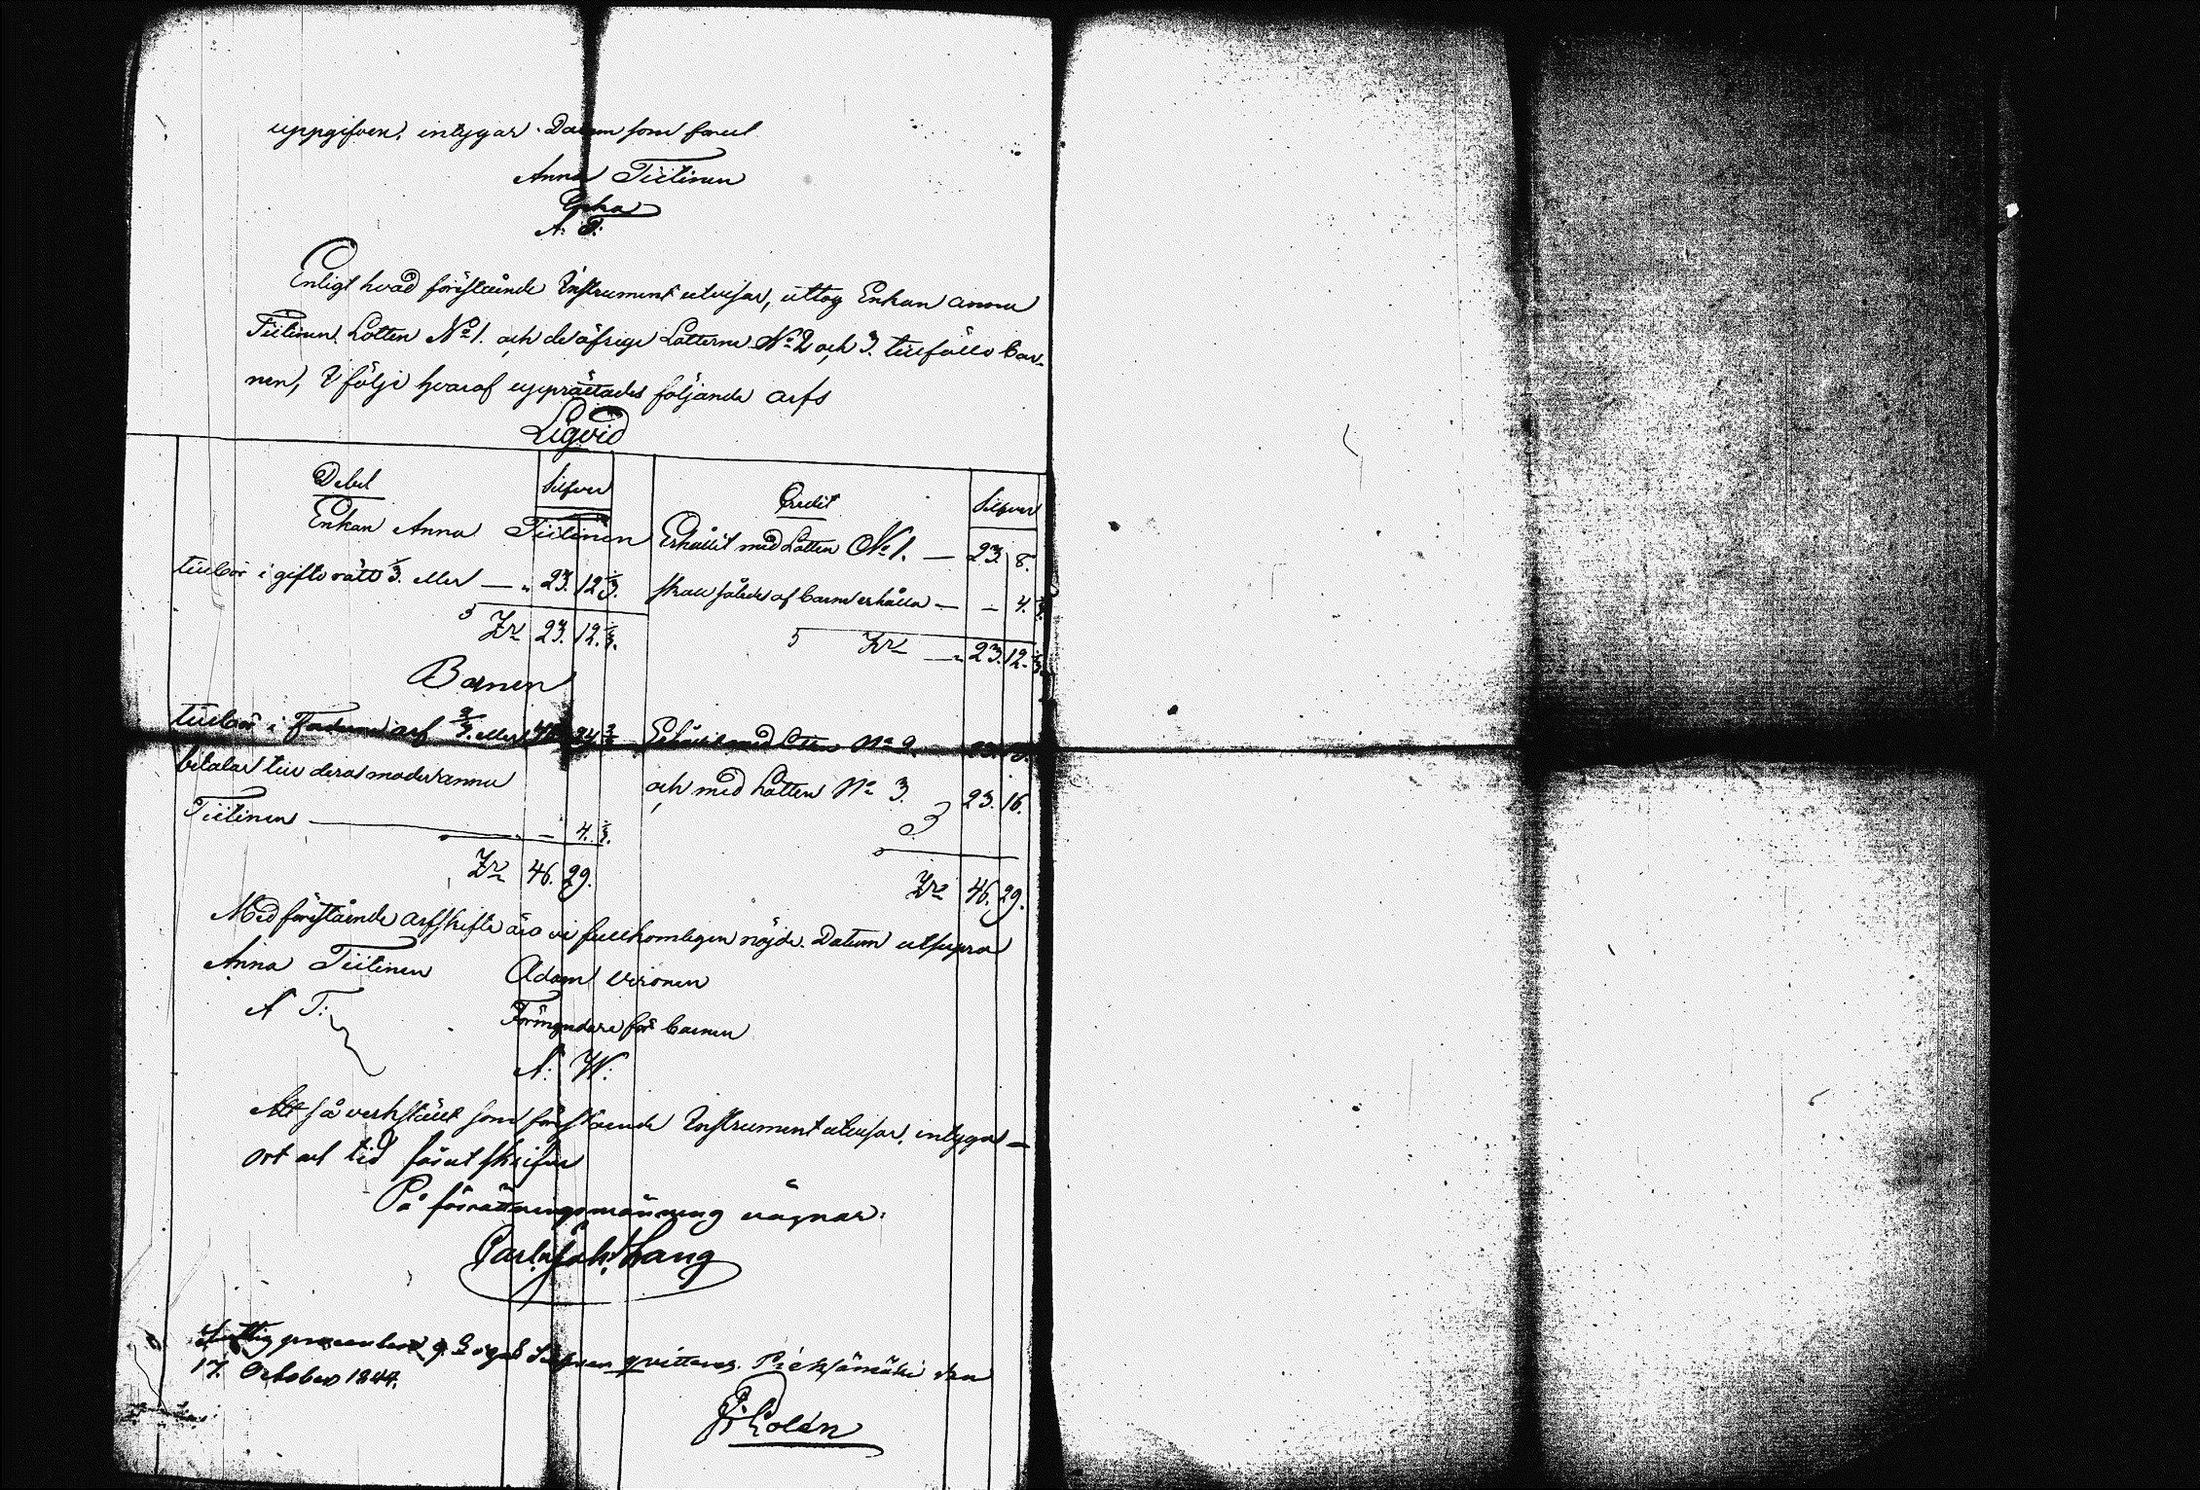 uppgifven, intygar. Datum som förut
Anna Tiitinen
Enka
A. T.
Enligt hvad förestående Instrument utvisar, uttog Enkan Anna
Tiitinen Lotten No 1. och de öfrige Lotterne No 2 och 3. tillföllo bar-
nen, I följe hvaraf upprättades följande arfs
Liqvid
Debet Silfver Credit Silfver
Enkan Anna Tiitinen Erhållit med Lotten No 1. — 23. 8.
tillkör i giftorätt 1/3. eller — " 23. 12 1/3. skall således af barnen erhålla — — 4. 1/3.
23. 12. 1/3. 23. 12. 1/3.
Barnen
i Faderne arf 2/3. eller Erhållit med Lotten No 2.
betalar till deras moder Anna och med Lotten No 3. 23. 16.
Tiitinen — — 4. 1/3.
46. 29. 46. 29.
Med förestående arfskifte äro vi fullkomligen nöjde. Datum utsupra
Anna Tiitinen Adam
A T: Förmyndare för barnen
A: W:
Att så verkstält som förestående Instrument utvisar, intygas
ort och tid förut skrifne
På förrättningsmännens vägnar:
Carl Joh: Lang
Silfver qvitteras. Pieksämäki den
17. October 1844.